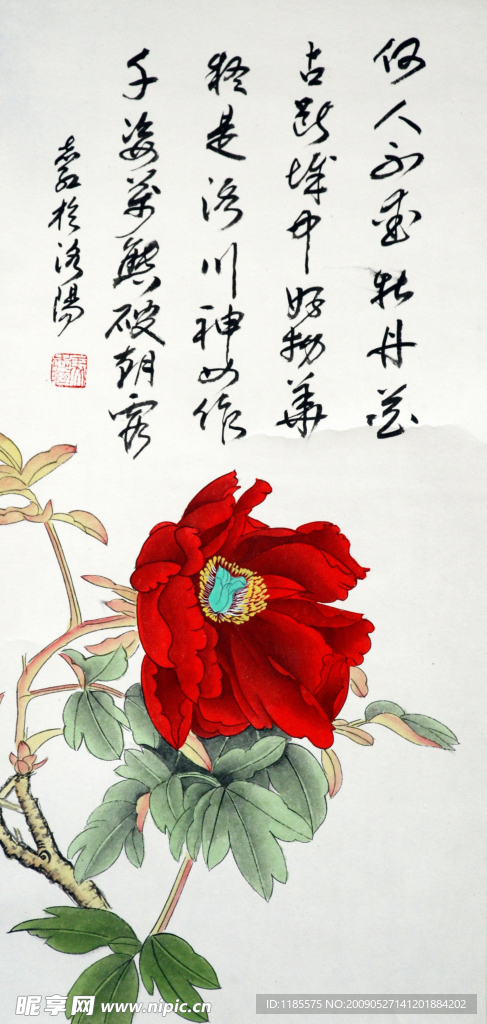 何人不爱牡丹花
占断城中好物華
疑是洛川神女作
千姿萬態破朝霞
於洛陽
昵享网 www.nipic.cn
ID:1185575 NO:20090527141201884202